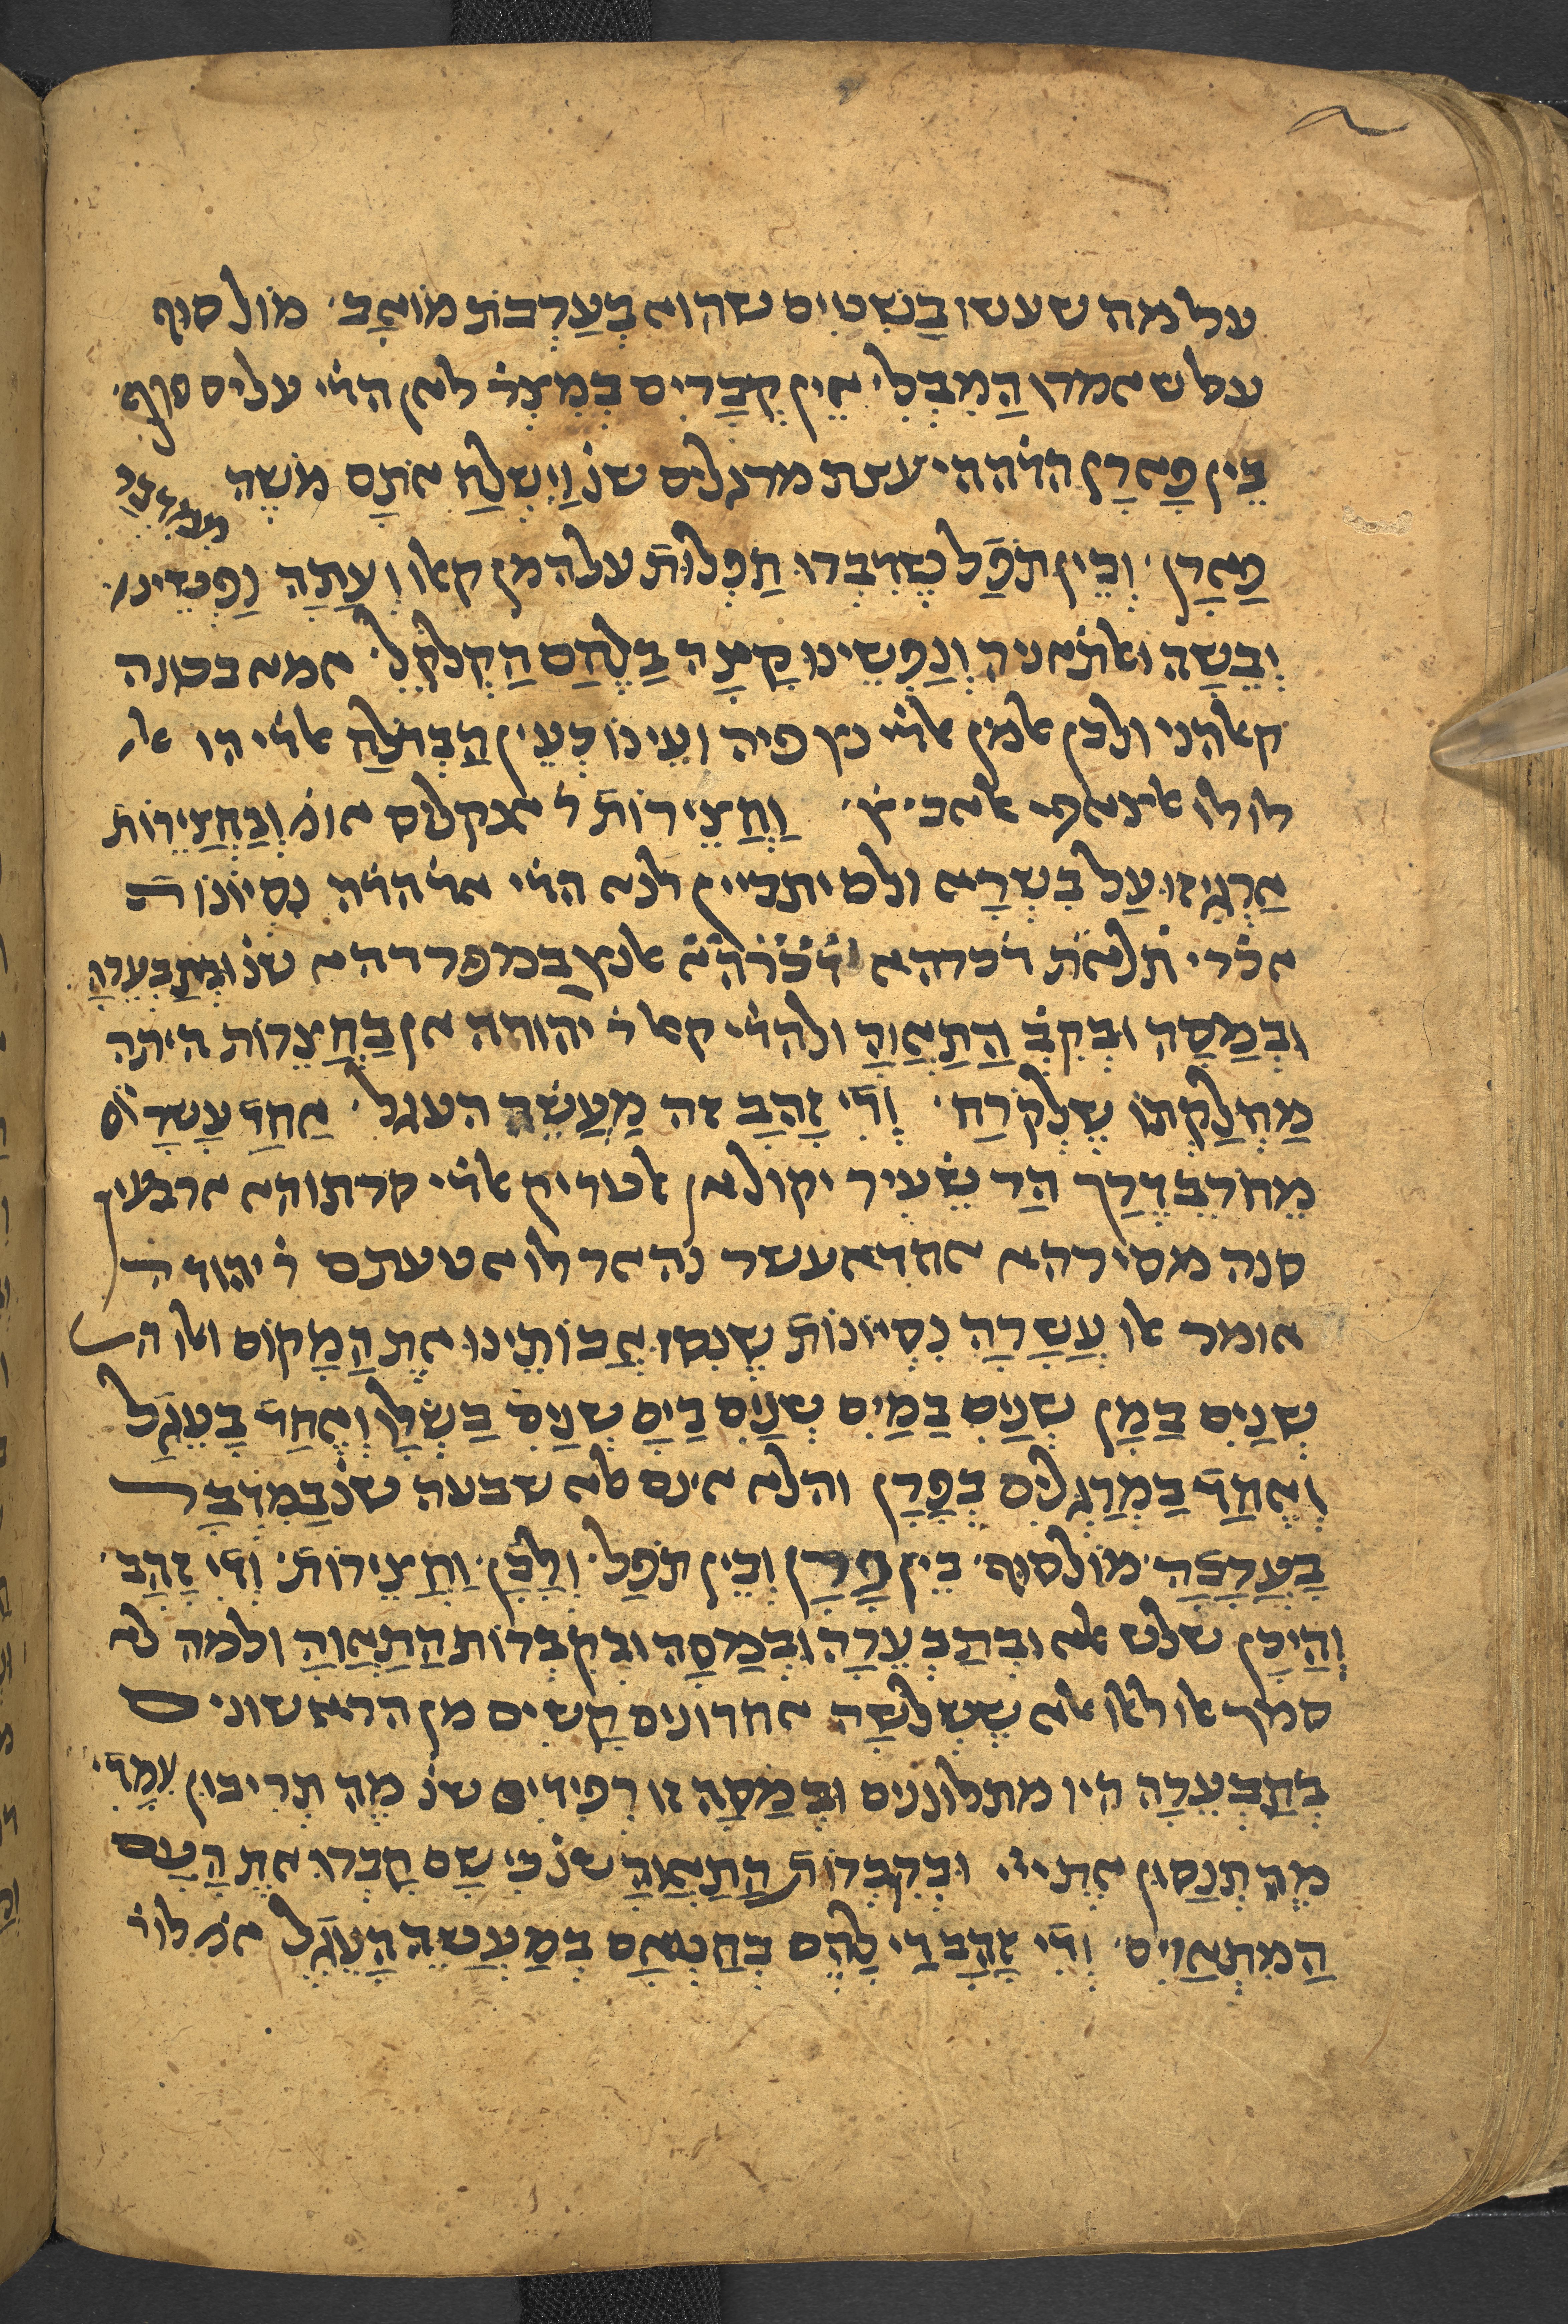 על מה שעשו בַשִׁטִים שהוא בְעַרְבֹת מוֹאָב׳ מוֹל סוּף
על שאמרו הַמִבְלִי אֵין קְבָרִים בְמִצְרַ׳ לאן הדׄי עלים סוף׳
בֵין פָארָן הדׄה הי עצת מרגלים שנ׳ וַיִשְלַח אֹתָם מֹשֶה
ממִדְבַר
פָארָן׳ וְבֵין תֹפֶל שֶדִבְרוּ תַפְלוּת עלה מן קאלו וְעַתָה נַפְשֵינוּ
יְבֵשָה ואלתׄאניה וְנַפְשֵינוּ קָצָה בַלֶחֶם הַקְלֹקֵל׳ אמא בכונה
קאלהני ולבן אלמן אלדׄי נץ פיה וְעֵינוֹ כְעֵין הַבְדֹלַח אלדׄי הו אל
לולו אלצאפי אלאבי׳ץׄ׳ וַחֲצֵירוֹת ר׳ אנקלוס אומ׳ וּבַחֲצֵירוֹת
אַרְגִיזוּ עַל בִשְרָא ולם יתביין לנא הדׄי אלדׄהדׄה נִסְיוֹנוֹת
אלדׄי תׄלאתׄ דׄכרהא דׄכׄרׄהׄאׄ אלנץ במפרדהא שנ׳ וּבְתַבְעֵרָה
וּבְמַסָה וּבְקִבְ׳ הַתַאֲוָה ולהדׄי קאל ר׳ יהודה אן בַחֲצֵרוֹת היתה
מַחְלַקְתוֹ שֶלְקֹרַח׳ וְדִי זָהָב זה מַעֲשֵה העגל׳ אַחַד עָשָר יוֹם
מֵחֹרֵב דֶרֶך הַר שֵעִיר יקול אן אלטריק אלדׄי קדתוהא ארבעין
סנה מסירהא אחדאעשר נהאר לו אטעתם ר׳ יהודה
אומר אלו עֲשָרָה נִסְיוֹנוֹת שֶנִסוּ אֲבוֹתֵינוּ אֶת הַמָקוֹם ואלו הן
שְנַיִם בַמָן שְנַיִם בַמַיִם שְנַיִם בַיָם שְנַיִם בַשְלָו וְאֶחָד בָעֵגֶל
וְאֶחָד בַמְרַגְלִים בְפָרָן והלא אינם אלא שבעה שנ׳ בַמִדְבָר
בָעֲרָבָה׳ מוֹל סוּף׳ בֵין פָרָן וְבֵין תֹפֶל׳ וְלָבָן׳ וַחֲצֵירוֹת׳ וְדִי זָהָב׳
וְהֵיכָן שלש אלא וּבְתַבְעֵרָה וּבְמַסָה וּבְקִבְרוֹת הַתַאֲוָה ולמה לא
סמך אלו לאלו אלא שֶשְלֹשָה אחרונים קָשִים מן הראשונים
בְתַבְעֵרָה היו מתלוננים וּבְמַסָה זו רְפִידִים שנ׳ מַה תְרִיבוּן עִמָדִי
מַה תְנַסוּן אֶת ייי׳ וּבְקִבְרוֹת הַתַאֲוָה שנ׳ כִי שָם קָבְרוּ אֶת הָעָם
הַמִתְאַוִים׳ וְדִי זָהָב דַי לָהֶם בְחֵטְאָם בְמַעֲשֵה הָעֵגֶל אמ׳ לו ר׳